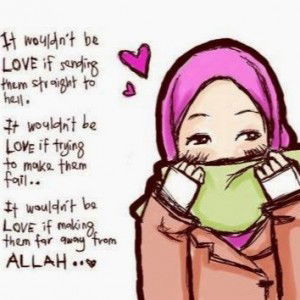 It wouldn't be
LOVE if sending
them straight to
hell.
It wouldn't be
LOVE if trying
to make them
fail..
It wouldn't be
LOVE if making
them far away from
ALLAH...